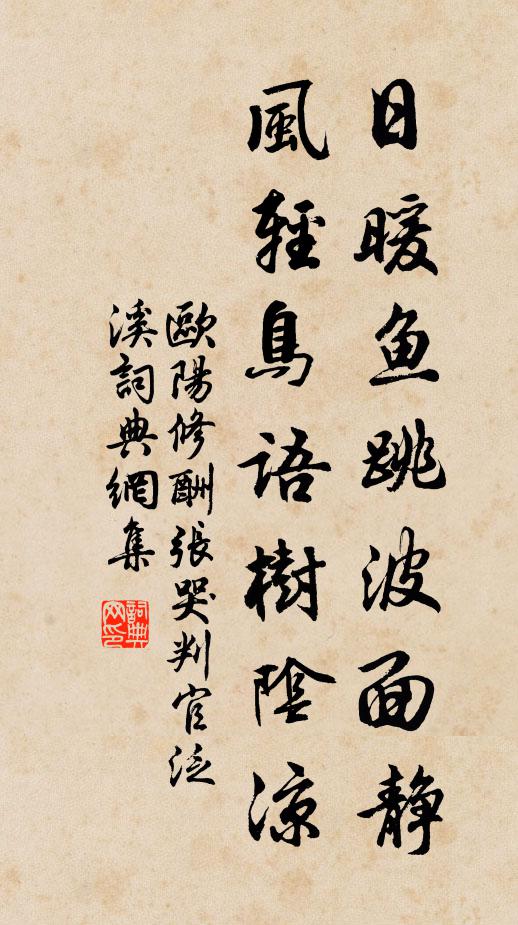 日暖鱼跳波面静
風輕鳥語樹陰涼
歐陽修酬張器判官泛
溪詞典網集
詞典
网印